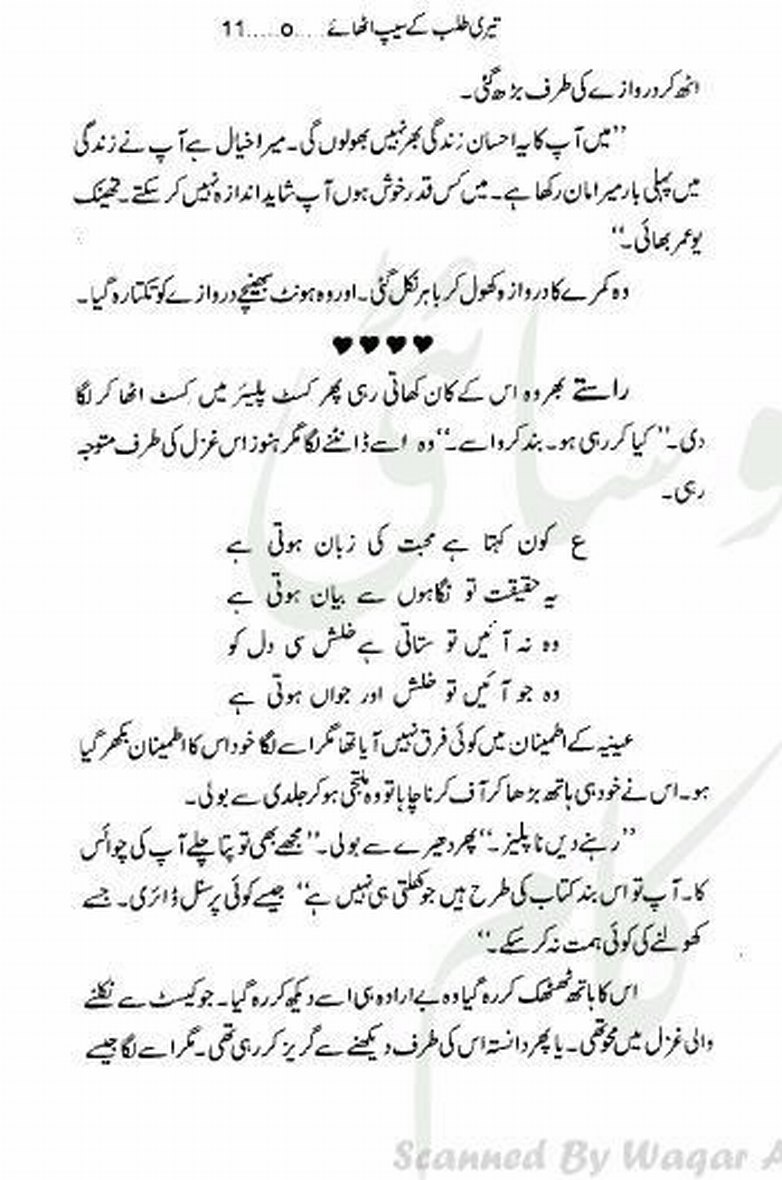 تیری طلب کے سیپ اٹھائے.....o.....11
اٹھ کر دروازے کی طرف بڑھ گئی۔
”میں آپ کا یہ احسان زندگی بھر نہیں بھولوں گی۔ میرا خیال ہے آپ نے زندگی
میں پہلی بار میرا مان رکھا ہے۔ میں کس قدر خوش ہوں آپ شاید اندازہ نہیں کر سکتے۔ تھینک
یو عمر بھائی۔“
وہ کمرے کا دروازہ کھول کر باہر نکل گئی۔ اور وہ ہونٹ بھینچے دروازے کو تکتا رہ گیا۔
♥♥♥♥
راستے بھر وہ اس کے کان کھاتی رہی پھر کسٹ پلیئر میں کسٹ اٹھا کر لگا
دی۔” کیا کر رہی ہو۔ بند کرو اسے۔“ وہ اسے ڈانٹنے لگا مگر ہنوز اس غزل کی طرف متوجہ
رہی۔
ع کون کہتا ہے محبت کی زبان ہوتی ہے
یہ حقیقت تو نگاہوں سے بیان ہوتی ہے
وہ نہ آئیں تو ستاتی ہے خلش سی دل کو
وہ جو آئیں تو خلش اور جواں ہوتی ہے
عینیہ کے اطمینان میں کوئی فرق نہیں آیا تھا مگر اسے لگا خود اس کا اطمینان بکھر گیا
ہو۔ اس نے خود ہی ہاتھ بڑھا کر آف کرنا چاہا تو وہ ملتجی ہو کر جلدی سے بولی۔
”رہنے دیں نا پلیز۔“ پھر دھیرے سے بولی۔” مجھے بھی تو پتا چلے آپ کی چوائس
کا۔ آپ تو اس بند کتاب کی طرح ہیں جو کھلتی ہی نہیں ہے“ جیسے کوئی پرسنل ڈائری۔ جسے
کھولنے کی کوئی ہمت نہ کر سکے۔“
اس کا ہاتھ ٹھٹھک کر رہ گیا وہ بے ارادہ ہی اسے دیکھ کر رہ گیا۔ جو کیسٹ سے نکلنے
والی غزل میں محو تھی۔ یا پھر دانستہ اس کی طرف دیکھنے سے گریز کر رہی تھی۔ مگر اسے لگا جیسے
Scanned By Waqar A